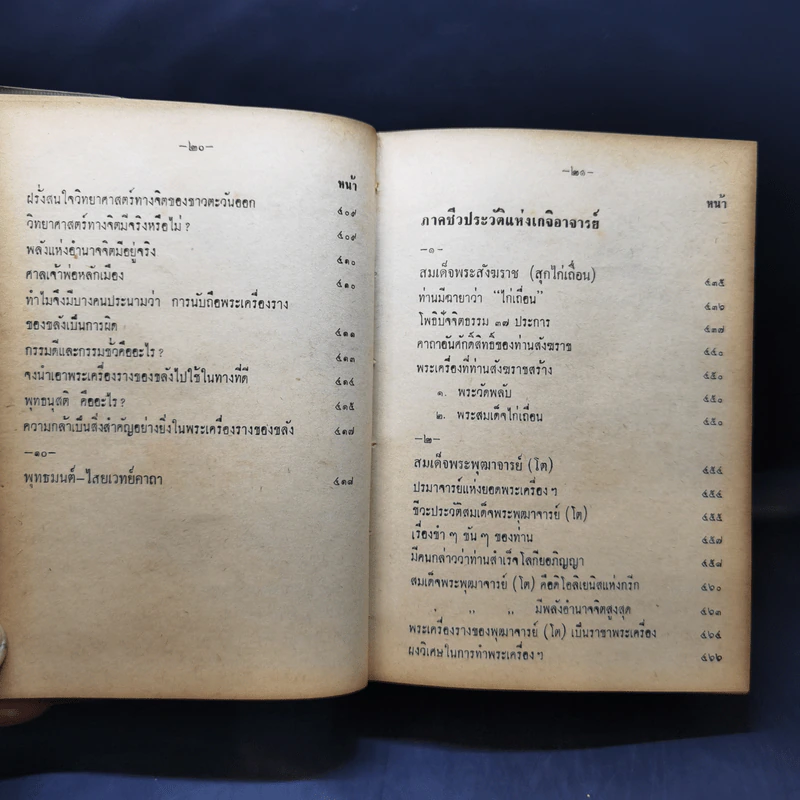 —๒๐—
หน้า
ฝรั่งสนใจวิทยาศาสตร์ทางจิตของชาวตะวันออก ๔๐๙
วิทยาศาสตร์ทางจิตมีจริงหรือไม่ ? ๔๐๙
พลังแห่งอำนาจจิตมีอยู่จริง ๔๑๐
ศาลเจ้าพ่อหลักเมือง ๔๑๐
ทำไมจึงมีบางคนประนามว่า การนับถือพระเครื่องราง
ของขลังเป็นการผิด ๔๑๑
กรรมดีและกรรมชั่วคืออะไร ? ๔๑๓
จงนำเอาพระเครื่องรางของขลังไปใช้ในทางที่ดี ๔๑๔
พุทธนุสติ คืออะไร ? ๔๑๕
ความกล้าเป็นสิ่งสำคัญอย่างยิ่งในพระเครื่องรางของขลัง ๔๑๗
—๑๐—
พุทธมนต์–ไสยเวทย์คาถา ๔๑๗
—๒๑—
หน้า
ภาคชีวประวัติแห่งเกจิอาจารย์
—๑—
สมเด็จพระสังฆราช (สุกไก่เถื่อน) ๔๓๕
ท่านมีฉายาว่า "ไก่เถื่อน" ๔๓๖
โพธิปัจจิตธรรม ๓๗ ประการ ๔๓๗
คาถาอันศักดิ์สิทธิ์ของท่านสังฆราช ๔๔๐
พระเครื่องที่ท่านสังฆราชสร้าง ๔๕๐
๑. พระวัดพลับ ๔๕๐
๒. พระสมเด็จไก่เถื่อน ๔๕๐
—๒—
สมเด็จพระพุฒาจารย์ (โต) ๔๕๔
ปรมาจารย์แห่งยอดพระเครื่อง ฯ ๔๕๔
ชีวะประวัติสมเด็จพระพุฒาจารย์ (โต) ๔๕๕
เรื่องขำ ๆ ขัน ๆ ของท่าน ๔๕๗
มีคนกล่าวว่าท่านสำเร็จโลกียอภิญญา ๔๕๘
สมเด็จพระพุฒาจารย์ (โต) คือดิโอลิเยนิสแห่งกรีก ๔๖๐
" " " มีพลังอำนาจจิตสูงสุด ๔๖๓
พระเครื่องรางของพุฒาจารย์ (โต) เป็นราชาพระเครื่อง ๔๖๔
ผงวิเศษในการทำพระเครื่อง ฯ ๔๖๖